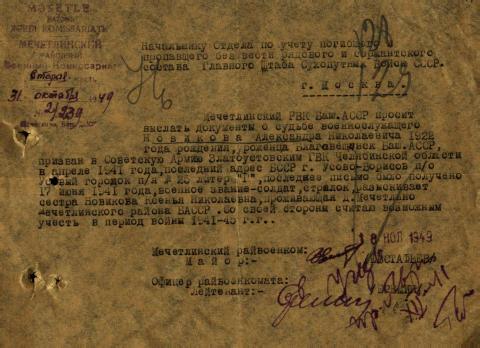 МӘСЕТЛЕ
РАЙОН
МЕЧЕТЛИНСКИЙ
РАЙОННЫЙ
Военный Комиссариат
Вторая часть
31 октября 1949
№ 2/239
128
125
Начальнику Отдела по учету погибшего
пропавшего без вести рядового и сержантского
состава Главного Штаба Сухопутных Войск СССР.
г. Москва.
Мечетлинский РВК Баш.АССР просит
выслать документы о судьбе военнослужащего
Новикова Александра Николаевича 1922
года рождения, уроженца Благовещенск Баш.АССР,
призван в Советскую Армию Златоустовским ГВК Челябинской области
в апреле 1941 года, последний адрес БССР г. Усово-Борисов п/о
городок п/я № 25 литер "Г", последнее письмо было получено
17 июня 1941 года, военное звание-солдат, стрелок, разыскивает
сестра Новикова Ксенья Николаевна, проживающая д.Мечетлино
мечетлинского района БАССР .Со своей стороны считаю возможным
учесть в период войны 1941-45 г.г..
Мечетлинский райвоенком:-
Майор:-
8 НОЯ 1949
Офицер райвоенкомата:-
Лейтенант:-